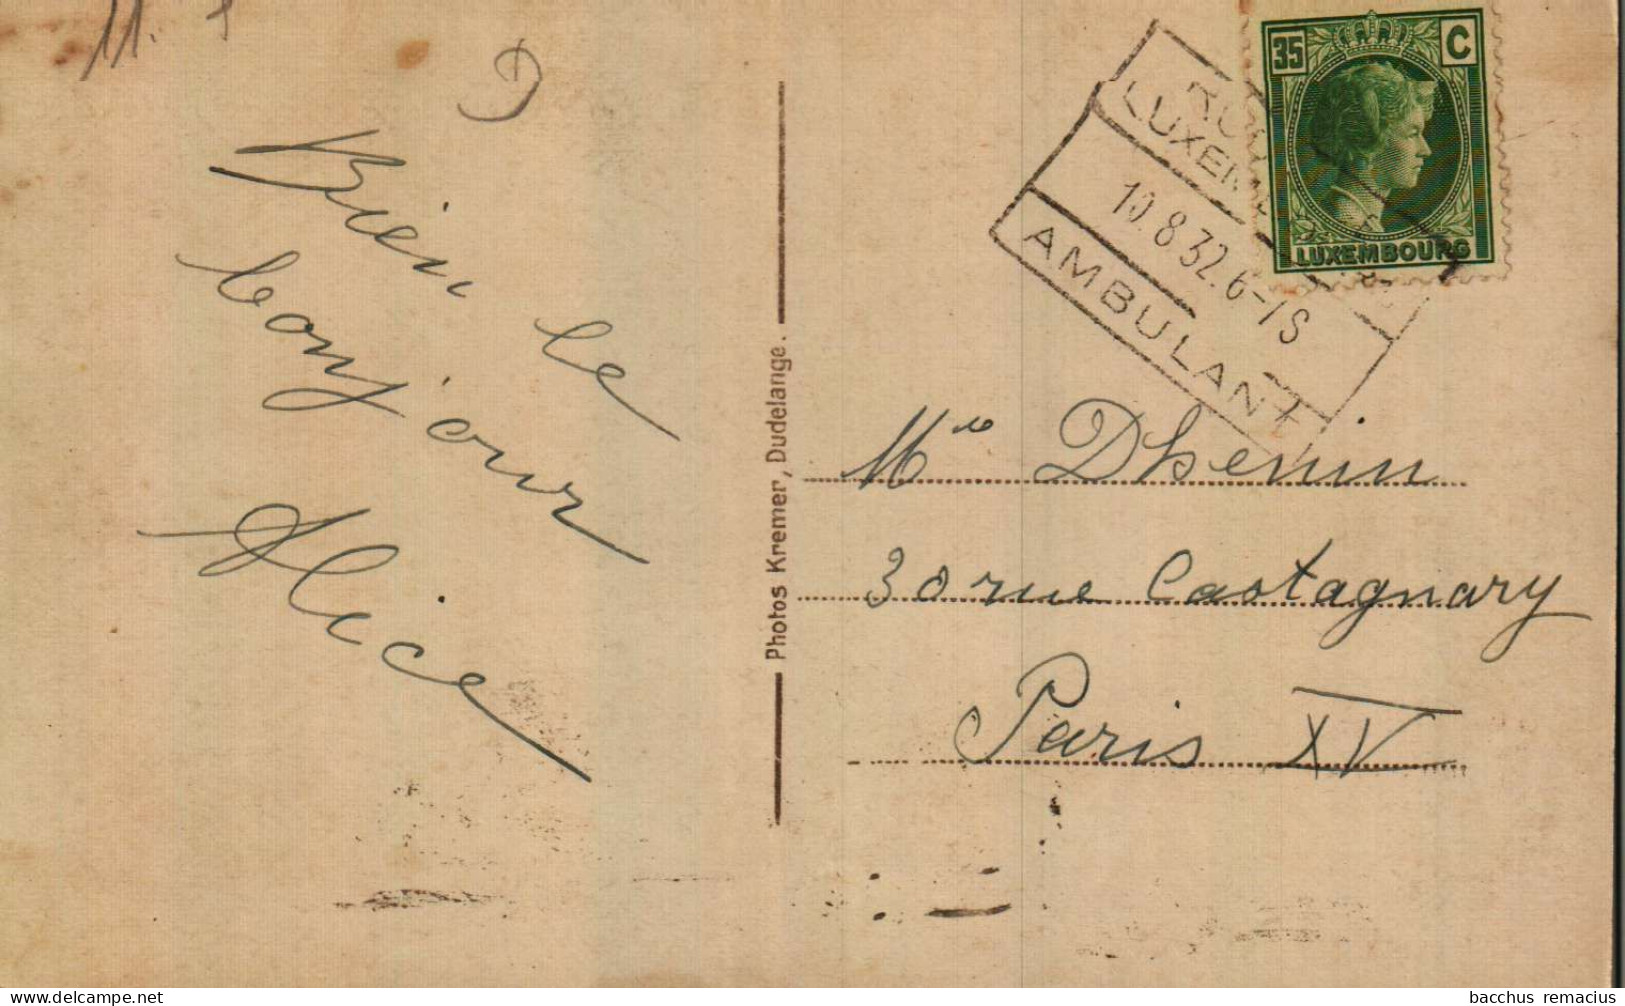 11.
Bien le
bonjour
Alice
Photos Kremer, Dudelange.
35 C
LUXEMBOURG
LUXEM
10.8.32.6-7S
AMBULANT
Mlle Dhenin
30 rue Castagnary
Paris XV
bacchus remacius